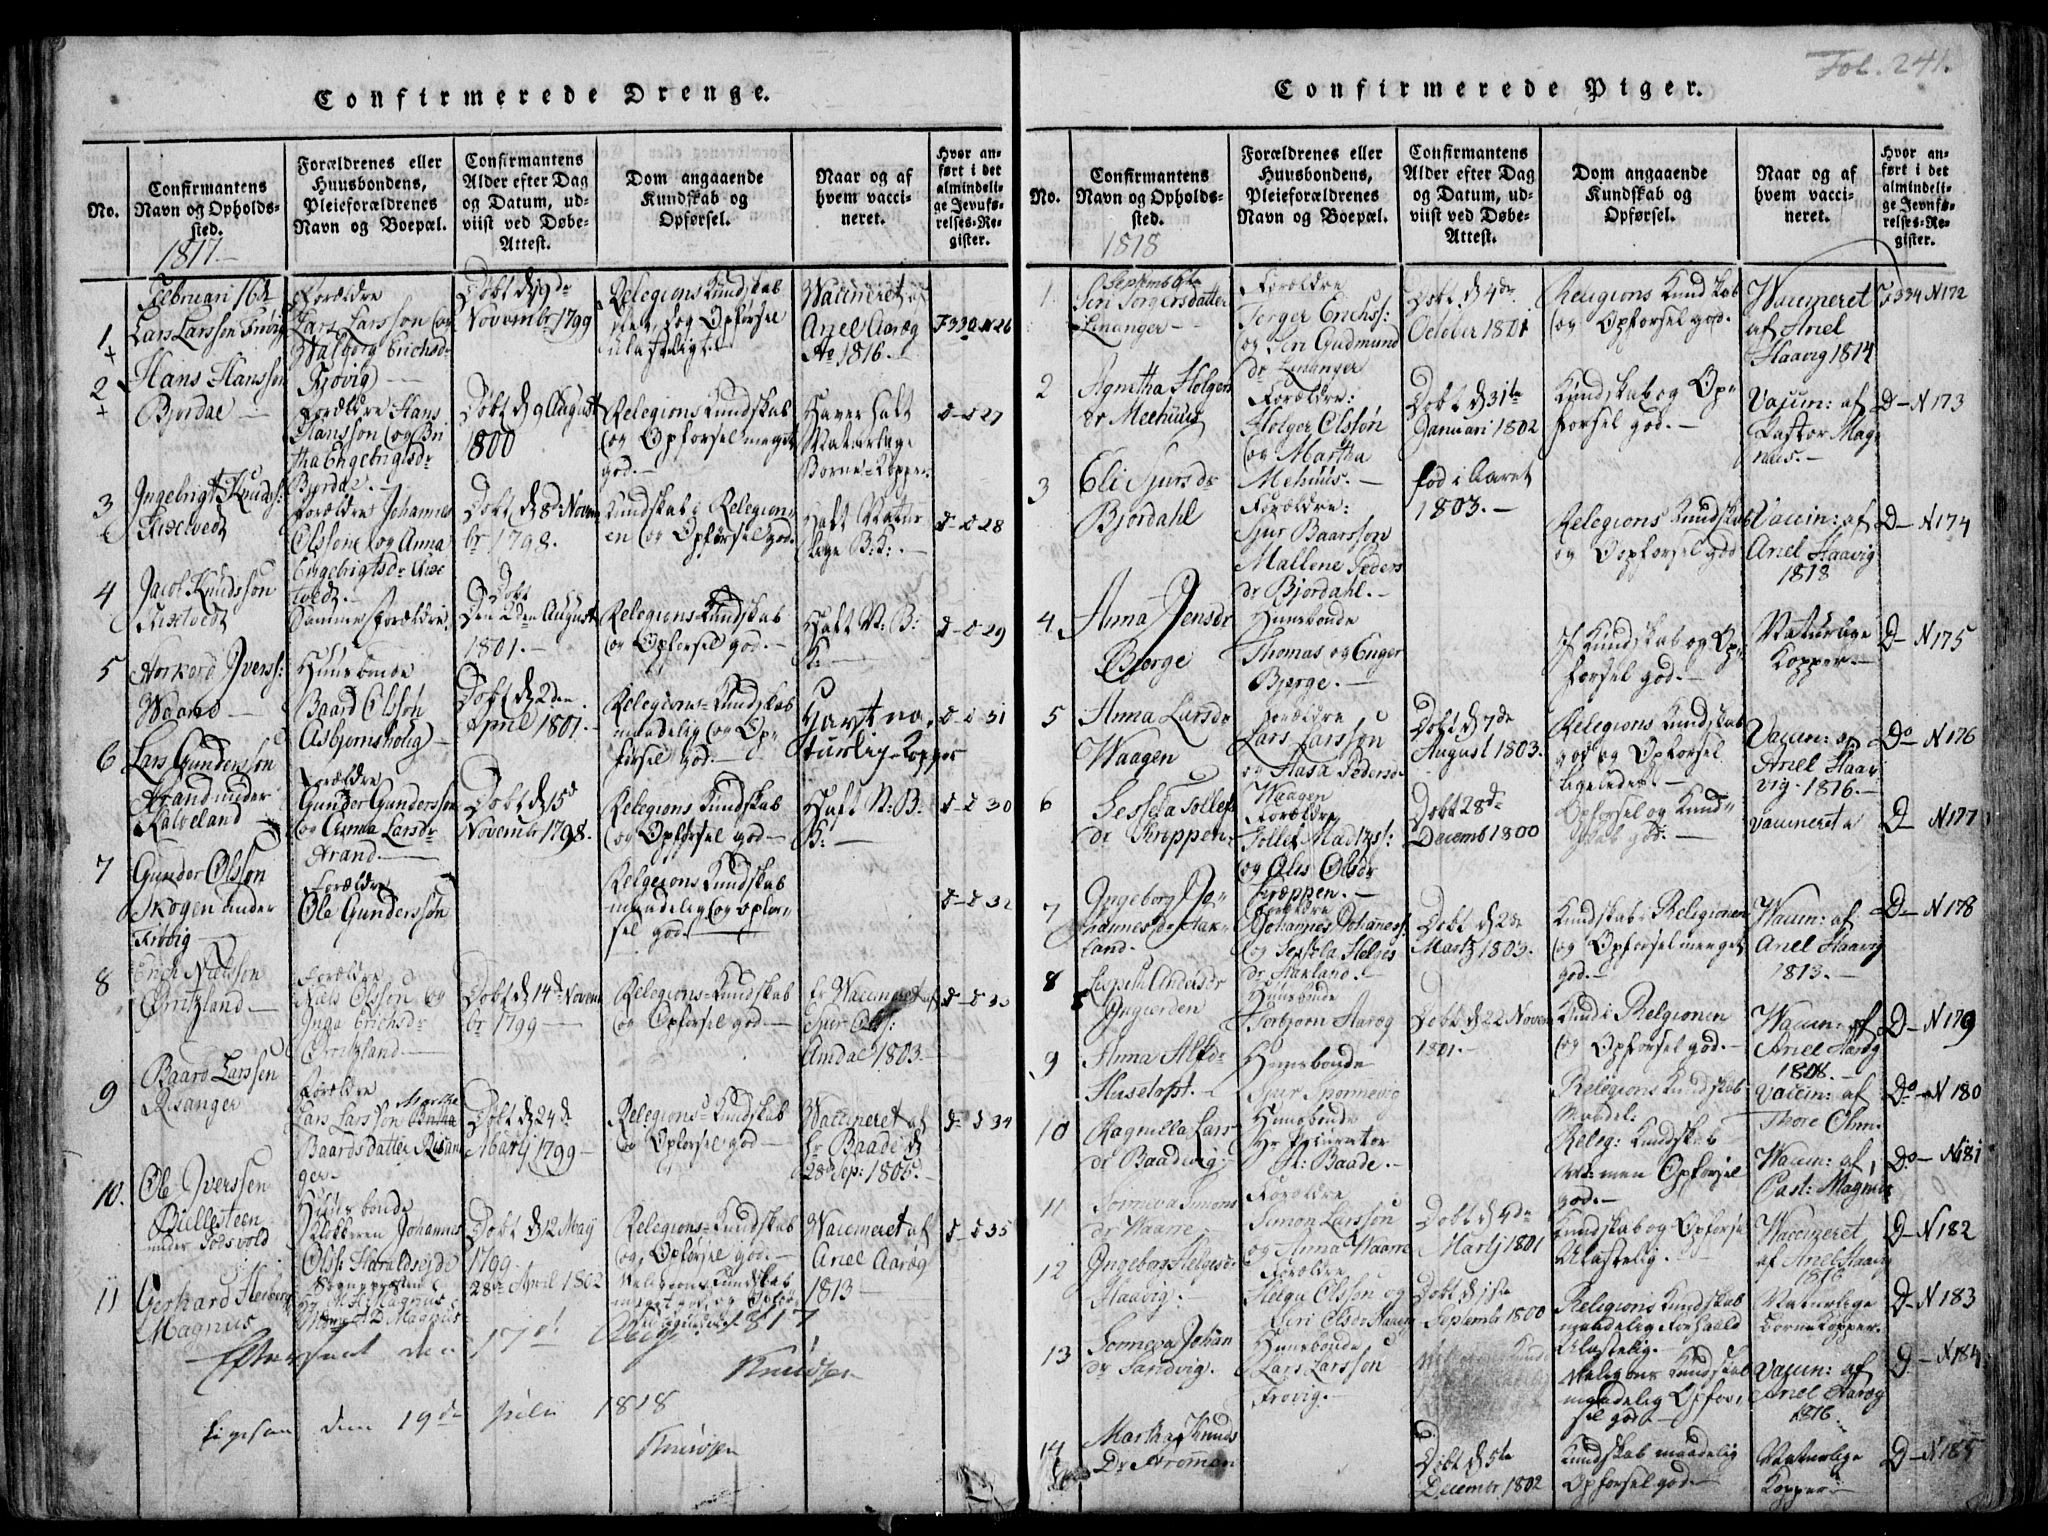 Fol. 241.
Confirmerede Drenge.
No.
Confirmantens
Navn og Opholds-
sted.
1817.
Forældrenes eller
Huusbondens,
Pleieforældrenes
Navn og Boepæl.
Confirmantens
Alder efter Dag
og Datum, ud-
viist ved Døbe-
Attest.
Dom angaaende
Kundskab og
Opførsel.
Naar og af
hvem vacci-
neret.
Hvor an-
ført i det
almindeli-
ge Jevnfø-
relses-Re-
gister.
1
Februari 16d
Lars Larsson Frövig
Forældre
Lars Larsson og
Walborg Erichsdr
Frövig
Döbt d 9de
Novembr 1799
Relegions Kundskab
slet, dog Opförsel
ulasteligt.
Waccineret af
Ariel Aarøg
Ao 1816.
F 330 N 26
2
Hans Hansson
Bjordal
Forældre Hans
Hansson og Bri
tha Engebrigtsdr
Bjordal.
Döbt d 9 August
1800
Relegions Kundskab
og Opførsel meget
god.
Haver haft
Naturlige
Börne-Kopper.
D - D 27
3
Ingebrigt Knuds:
Tistvedt
Forældre Johannes
Olssøn og Anna
Engebrigtsdr
Döbt d 8d Novem
br 1798.
Kundskab i Relegion
en og Opførsel god.
Haft Natur
lige B:K:
D - D 28
4
Jacob Knudssøn
Tistvedt
Samme Forældre
Döbt
Den 2den August
1801.
Relegions Kundskab
og Opførsel god.
Haft N: B:
K:
D - D 29
5
Iverss:
Waage
Huusbonde
Baard Olssøn
Asbjørnshoug
Döbt d 2den
April 1801.
Relegions Kundskab
maadelig og Op-
førsel god.
Havt na-
turlige Kopper
D - D 31
6
Lars Gunderssøn
Strand under
Kalveland
Forældre
Gunder Gunderssøn
og Anna Larsdr
Strand.
Döbt d 15d
November 1798.
Relegions Kundskab
og Opførsel god
Haft N: B:
K:
D - D 30
7
Gunder Olssøn
Skogen under
Frövig
Forældre
Ole Gunderssøn
Relegions Kundskab
maadelig og opfør-
sel god.
D - D 32
8
Erich Nielsson
Gritzland
Forældre
Niels Olssøn og
Inga Erichsdr
Gritzland
Döbt d 14de Novem
br 1799
Relegions Kundskab
og Opførsel god.
Er Waccineret af
Sjur Ols:
Amdal 1803.
D - D 33
9
Baard Larssen
Risanger
Forældre
Lars Larssøn Martha
Baardsdatter Risan
ger
Döbt d 24d
Martj 1799
Relegions Kundskab
og Opførsel god
Waccineret af
Hr Baade d
28 Sep: 1805.
D - D 34
10.
Ole Iverssen
Biellesteen
under
Huusbonde
Klokkeren Johannes
Olss: Haraldseide
Döbt d 12 Maij
1799
Relegions Kundskab
og Opførsel god.
Waccineret af
Ariel Aarøg
1813
D - D 35
11
Gerhard Heiberg
Magnus
Sognepræsten
Hr M: H: Magnus
28de April 1802
Relegions Kundskab
meget god og Opför
1817
Efterseet den 17de Aug. 1817
Knudzen
Ligesaa den 19de Julii 1818
Knudzen
Confirmerede Piger.
No.
Confirmantens
Navn og Opholds-
sted.
1818
Forældrenes eller
Huusbondens,
Pleieforældrenes
Navn og Boepæl.
Confirmantens
Alder efter Dag
og Datum, ud-
viist ved Døbe-
Attest.
Dom angaaende
Kundskab og
Opførsel.
Naar og af
hvem vacci-
neret.
Hvor an-
ført i det
almindeli-
ge Jevnfø-
relses-Re-
gister.
1.
Septemb 6te
Siri Torgersdatter
Linanger
Forældre
Torger Erichss:
og Siri Gudmund
dr Linanger
Döbt d 4de
October 1801
Religions Kundskab
og Opførsel god.
Waccineret
af Ariel
Haavig 1814
F 334 N 172
2
Agnetha Holger
dr Meehuus
Forældre:
Holger Olssøn
og Martha
Mehuus.
Döbt d 31te
Januari 1802
Kundskab og Op-
førsel god.
Vaccin: af
Pastor Mag
nus.
D - N 173
3
Eli Sjursdr
Bjordahl
Forældre:
Sjur Baarssøn
Mallene Peders
dr Bjordahl.
fød i Aaret
1803.
Relegions Kundskab
og Opførsel god
Vaccin: af
Ariel Haavig
1818
D - N 174
4
Anna Jensdr
Bjerge
Huusbonde
Thomas og Enger
Bjerge.
Kundskab og Op-
førsel god.
Naturlige
Kopper.
D - N 175
5
Anna Larsdr
Waagen
Forældre
Lars Larssøn
og Aasa Pedersdr
Waagen
Döbt d 7de
August 1803.
Relegions Kundskab
god og Opførsel
ligeledes.
Vaccin: af
Ariel Haa
vig. 1816.
Do - N 176
6
Sessela Tollefs
dr Kreppen
Forældre
Tollef Madtzs:
og Olis Olsdr
Kræppen.
Döbt 28de
Decemb 1800
Opførsel og Kund-
skab god.
Vaccineret
D - N 177
7
Ingeborg Jo-
hannesdr Aak-
land.
Forældre
Johannes Johaness:
og Seselia Helges
dr Aakland.
Döbt d 2de
Martz 1803.
Kundskab i Religionen
og Opførsel meeget
god.
Waccin: af
Ariel Haavig
1813.
D - N 178
8
Lispeth Andersdr
Indgierden
Huusbonde
Torbjørn Aarøg
Döbt d 22 Novem
1801.
Kund i Relgionen
og Opførsel god.
Waccin: af
Ariel Aarøg
1808.
D - N 179
9
Anna Alfdr
Huustoft.
Huusbonde
Sjur Sponnevig
Relegions Kundskab
Maadel:
Vaccin: af
Thore Ohm.
Do - N 180
10
Ragnilla Lars
dr Baadevig
Huusbonde
Hr Procurator
H: Baade.
Releg: Kundskab
men Opførsel
god.
Waccin: af
Past: Magnus
Do - N 181
11
Sønneva Simons
dr Waare
Forældre
Simon Larssøn
og Anna Waare
Döbt d 4de
Martj 1801
Kundskab og Opførsel
Ulastelig.
Waccineret
af Ariel Haavig
1816
D - N 182
12
Ingebor Helgesdr
Haavig.
Forældre
Helge Olssøn og
Siri Olsdr Haavig
Döbt d 1ste
Septembr 1800
Religions Kundskab
maadelig Forhold
Ulastelig.
Naturlige
Börne Kopper.
D - N 183
13
Sonneva Johan
dr Sandvig.
Huusbonde
Lars Larssøn
Frövig.
Religions Kundskab
maadelig Opfør-
sel god.
Vaccin: af
Ariel Aarøg
1816.
D - N 184
14
Martha Knuds
Dr Strømmen
Döbt d 5te
Decembr 1802
Kundskab maadelig
Opførsel god.
Naturlige
Kopper
D - N 185